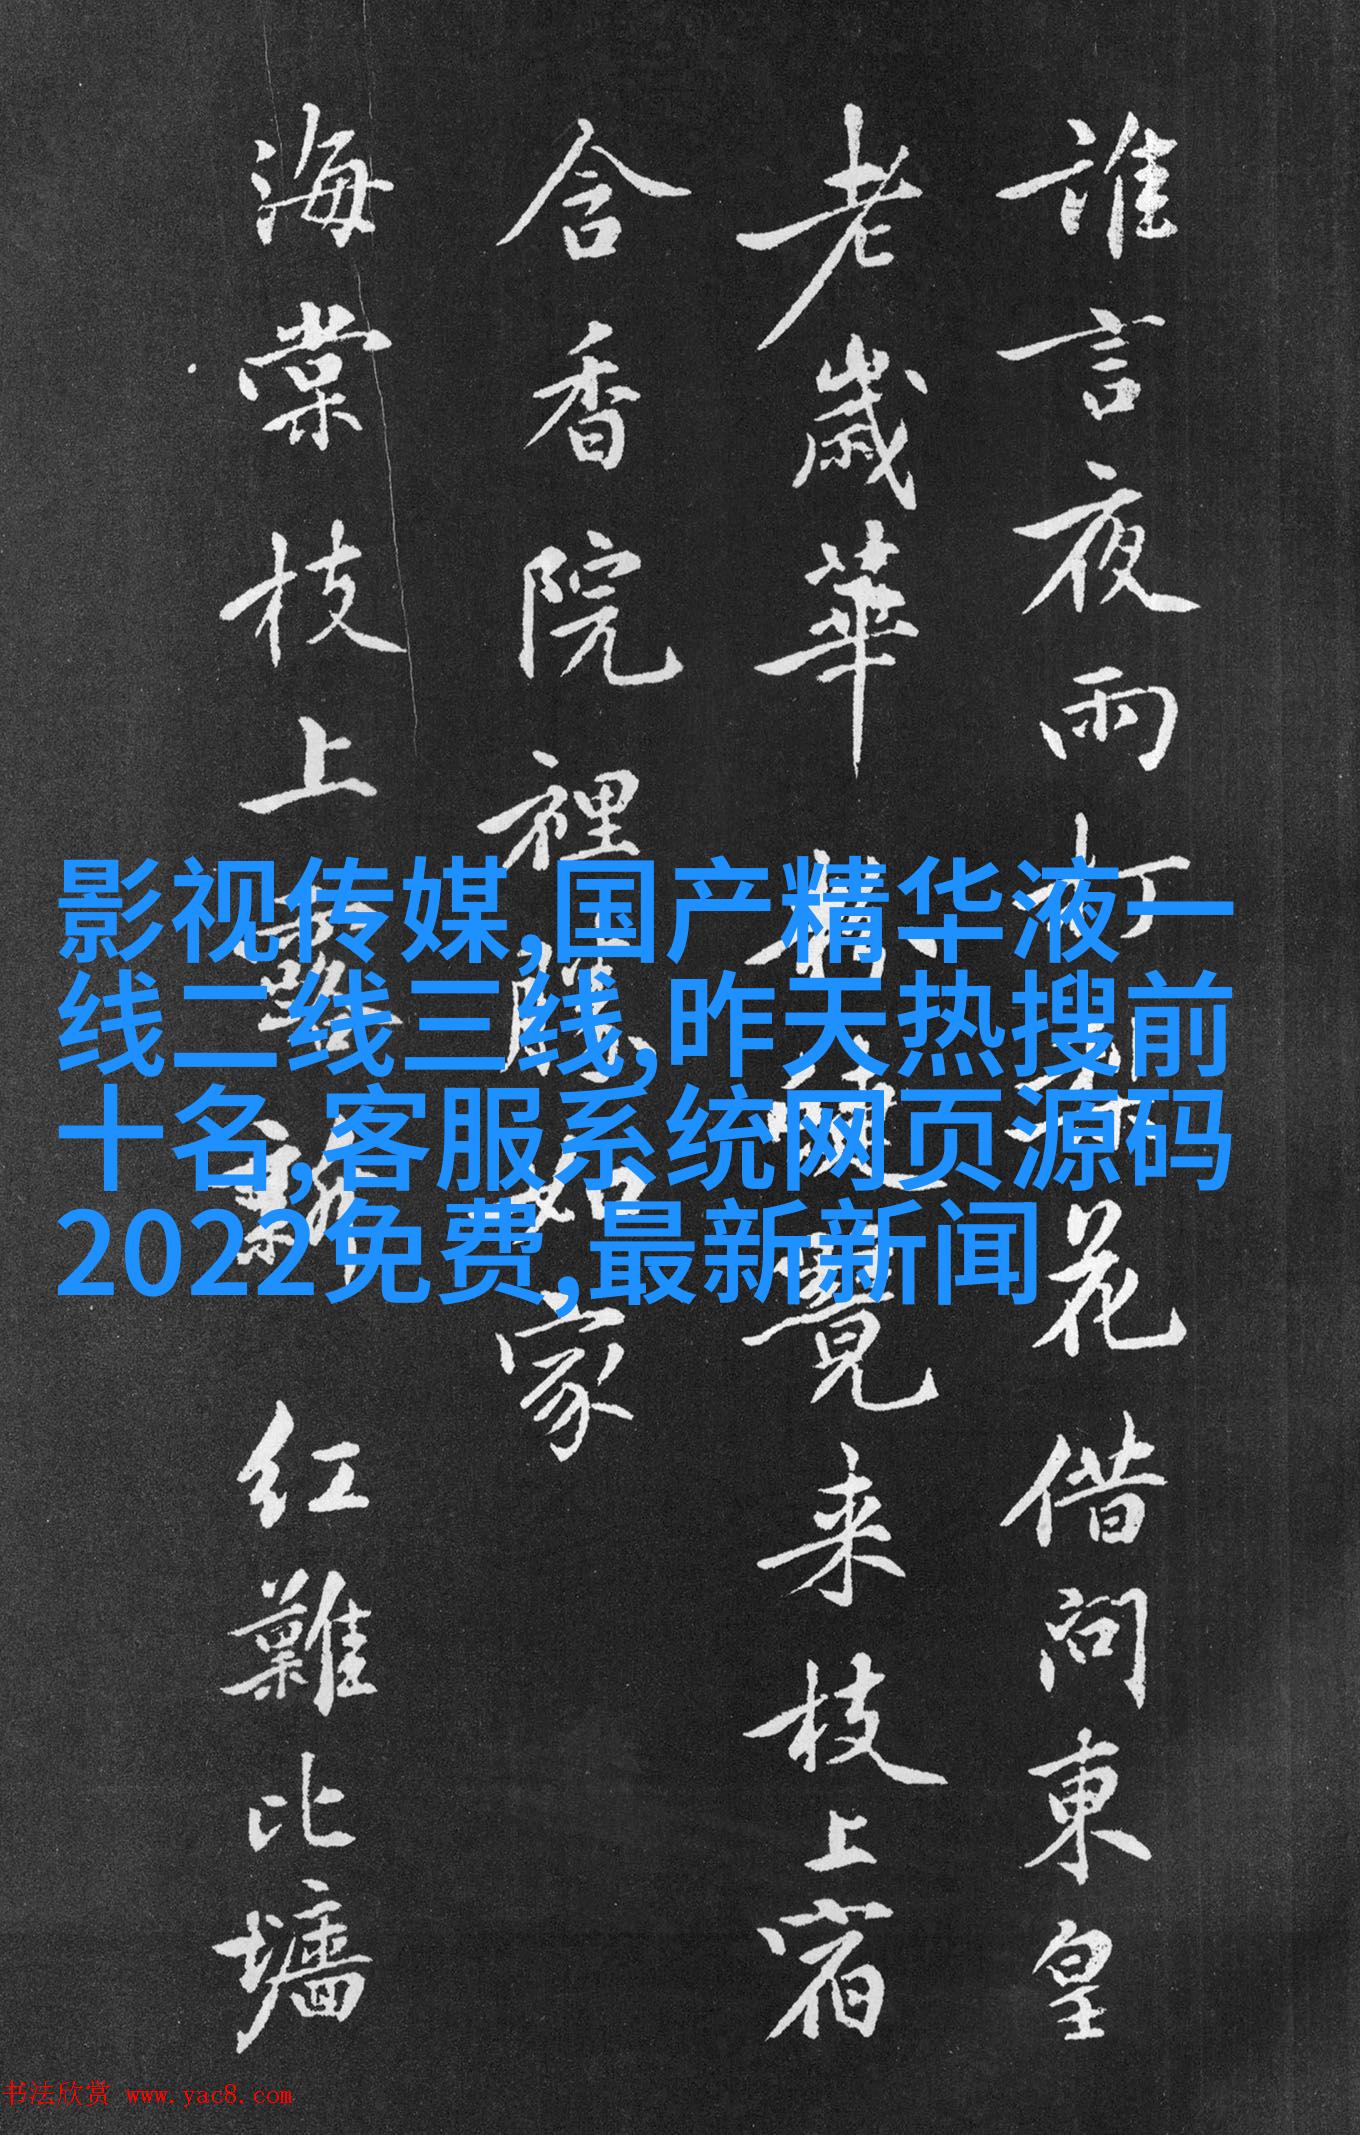 誰言夜雨打花借問東皇
老歲華覺来枝上宿
含香院裡勝如家
海棠枝上紅難比墻
影视传媒,国产精华液一
线二线三线,昨天热搜前
十名,客服系统网页源码
2022免费,最新新闻
书法欣赏 www.yac8.com